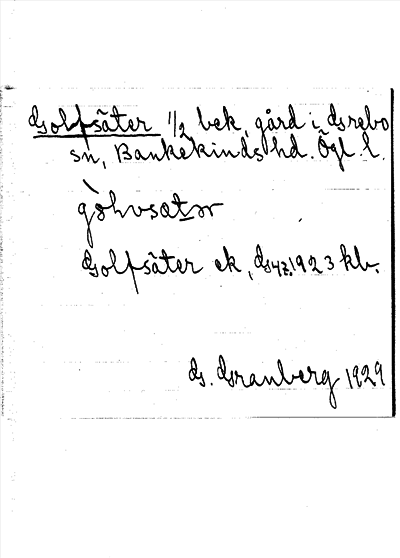 Golfsäter 1/2 bek, gård i Grebo
sn, Bankekinds hd. Ögl. l.
gòhvsatər
Golfsäter ek, G47. 1923 kb.
G. Granberg 1929